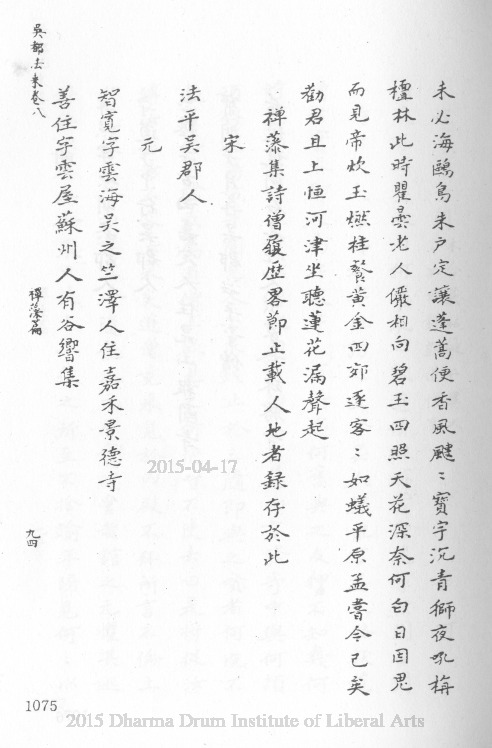 未必海鷗鳥未戶定讓蓬蒿便香風颸:寶宇沉青獅夜吼栴
檀林此時瞿曇老人儼相向碧玉四照天花深奈何白日因鬼
而見帝炊玉燃桂餐黃金四郊逐客:如蟻平原孟嘗今已矣
勸君且上恒河津坐聽蓮花漏聲起
禅藻集詩僧履歷畧節止載人地者錄存於此
宋
法平吴郡人
元
智寬字雲海吴之竺澤人住嘉禾景德寺
善住字雲屋蘇州人有谷響集
吳都法乘卷八
禪藻篇
九四
1075
2015-04-17
2015 Dharma Drum Institute of Liberal Arts